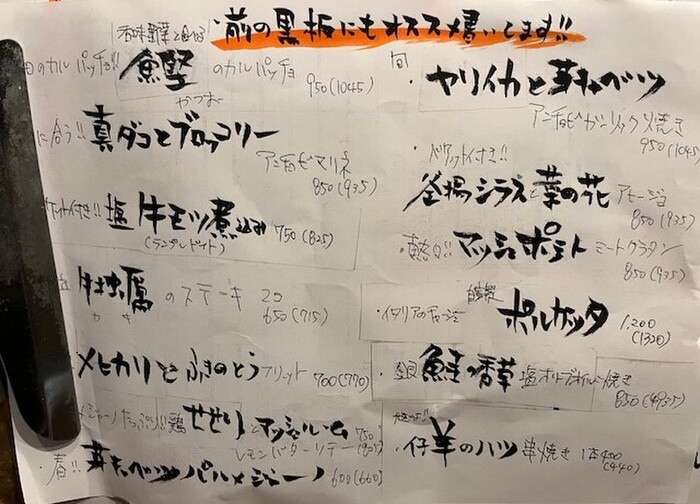 前の黒板にもオススメ書いてます!!
香味野菜と食べる
旬のカルパッチョ!! 鰹 のカルパッチョ 950(1045)
かつお
に合う!! 真ダコとブロッコリー
アンチョビマリネ
850(935)
付き!! 塩 牛モツ煮込み 750(825)
(ランプレドット)
牡蠣 のステーキ 2コ
カキ 650(715)
メヒカリとふきのとう フリット 700(770)
たっぷり!! 鶏 せせりとマッシュルーム 750
レモンバターソテー (825)
・春!! 芽キャベツパルメジャーノ 600(660)
旬 ・ヤリイカと芽キャベツ
アンチョビガーリック焼き
950(1045
・バゲット付き!!
釜揚シラスと菜の花 アヒージョ
850(935)
・熱々!! マッシュポテト ミートグラタン
850(935)
自家製
・イタリアのチャーシュー ポルケッタ 1,200
(1320)
・銀鮭の香草 塩オリーブオイル焼き
850(935)
・仔羊のハツ 串焼き 1本400
(440)